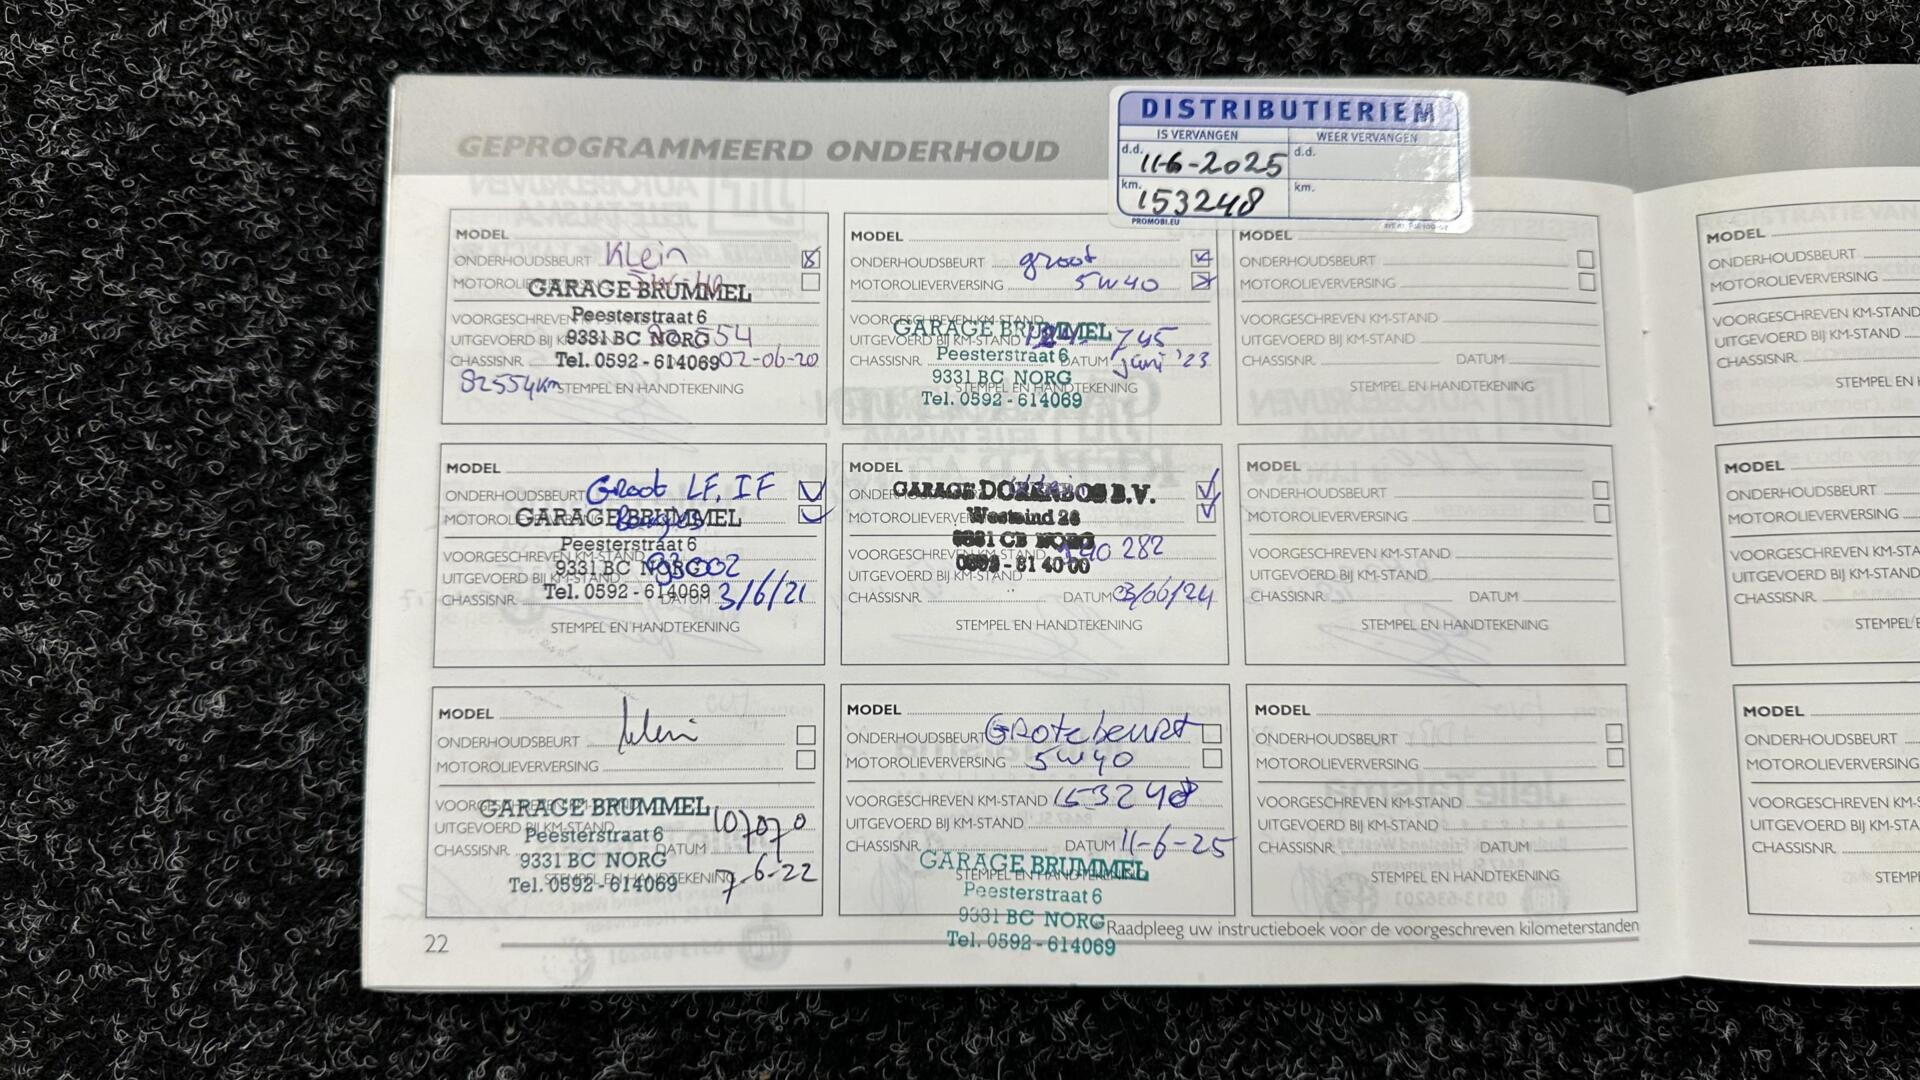 GEPROGRAMMEERD ONDERHOUD
DISTRIBUTIERIEM
IS VERVANGEN
WEER VERVANGEN
d.d. 11-6-2025
d.d.
km. 153248
km.
PROMOBI.EU
MODEL
ONDERHOUDSBEURT Klein
MOTOROLIEVERVERSING
GARAGE BRUMMEL
Peesterstraat 6
9331 BC NORG
Tel. 0592 - 614069
VOORGESCHREVEN KM-STAND
UITGEVOERD BIJ KM-STAND
CHASSISNR. 02-06-20
82554km
STEMPEL EN HANDTEKENING
MODEL
ONDERHOUDSBEURT Groot LF, IF
MOTOROLIEVERVERSING
GARAGE BRUMMEL
Peesterstraat 6
9331 BC NORG
Tel. 0592 - 614069
VOORGESCHREVEN KM-STAND
UITGEVOERD BIJ KM-STAND 93002
CHASSISNR. DATUM 3/6/21
STEMPEL EN HANDTEKENING
MODEL
ONDERHOUDSBEURT klein
MOTOROLIEVERVERSING
GARAGE BRUMMEL
Peesterstraat 6
9331 BC NORG
Tel. 0592 - 614069
VOORGESCHREVEN KM-STAND
UITGEVOERD BIJ KM-STAND 107070
CHASSISNR. DATUM
7-6-22
STEMPEL EN HANDTEKENING
MODEL
ONDERHOUDSBEURT groot
MOTOROLIEVERVERSING 5W40
GARAGE BRUMMEL
Peesterstraat 6
9331 BC NORG
Tel. 0592 - 614069
VOORGESCHREVEN KM-STAND
UITGEVOERD BIJ KM-STAND 745
CHASSISNR. DATUM juni '23
STEMPEL EN HANDTEKENING
MODEL
ONDERHOUDSBEURT
MOTOROLIEVERVERSING
GARAGE DORENBOS B.V.
Westeind 26
9331 CB NORG
0592 - 61 40 00
VOORGESCHREVEN KM-STAND 140 282
UITGEVOERD BIJ KM-STAND
CHASSISNR. DATUM 03/06/24
STEMPEL EN HANDTEKENING
MODEL
ONDERHOUDSBEURT Grote beurt
MOTOROLIEVERVERSING 5W40
VOORGESCHREVEN KM-STAND 153248
UITGEVOERD BIJ KM-STAND
CHASSISNR. DATUM 11-6-25
STEMPEL EN HANDTEKENING
GARAGE BRUMMEL
Peesterstraat 6
9331 BC NORG
Tel. 0592 - 614069
MODEL
ONDERHOUDSBEURT
MOTOROLIEVERVERSING
VOORGESCHREVEN KM-STAND
UITGEVOERD BIJ KM-STAND
CHASSISNR. DATUM
STEMPEL EN HANDTEKENING
MODEL
ONDERHOUDSBEURT
MOTOROLIEVERVERSING
VOORGESCHREVEN KM-STAND
UITGEVOERD BIJ KM-STAND
CHASSISNR. DATUM
STEMPEL EN HANDTEKENING
MODEL
ONDERHOUDSBEURT
MOTOROLIEVERVERSING
VOORGESCHREVEN KM-STAND
UITGEVOERD BIJ KM-STAND
CHASSISNR. DATUM
STEMPEL EN HANDTEKENING
22
Raadpleeg uw instructieboek voor de voorgeschreven kilometerstanden
MODEL
ONDERHOUDSBEURT
MOTOROLIEVERVERSING
VOORGESCHREVEN KM-STAND
UITGEVOERD BIJ KM-STAND
CHASSISNR.
STEMPEL EN
MODEL
ONDERHOUDSBEURT
MOTOROLIEVERVERSING
VOORGESCHREVEN KM-STAND
UITGEVOERD BIJ KM-STAND
CHASSISNR.
STEMPEL
MODEL
ONDERHOUDSBEURT
MOTOROLIEVERVERSING
VOORGESCHREVEN KM-STA
UITGEVOERD BIJ KM-STA
CHASSISNR.
STEMP